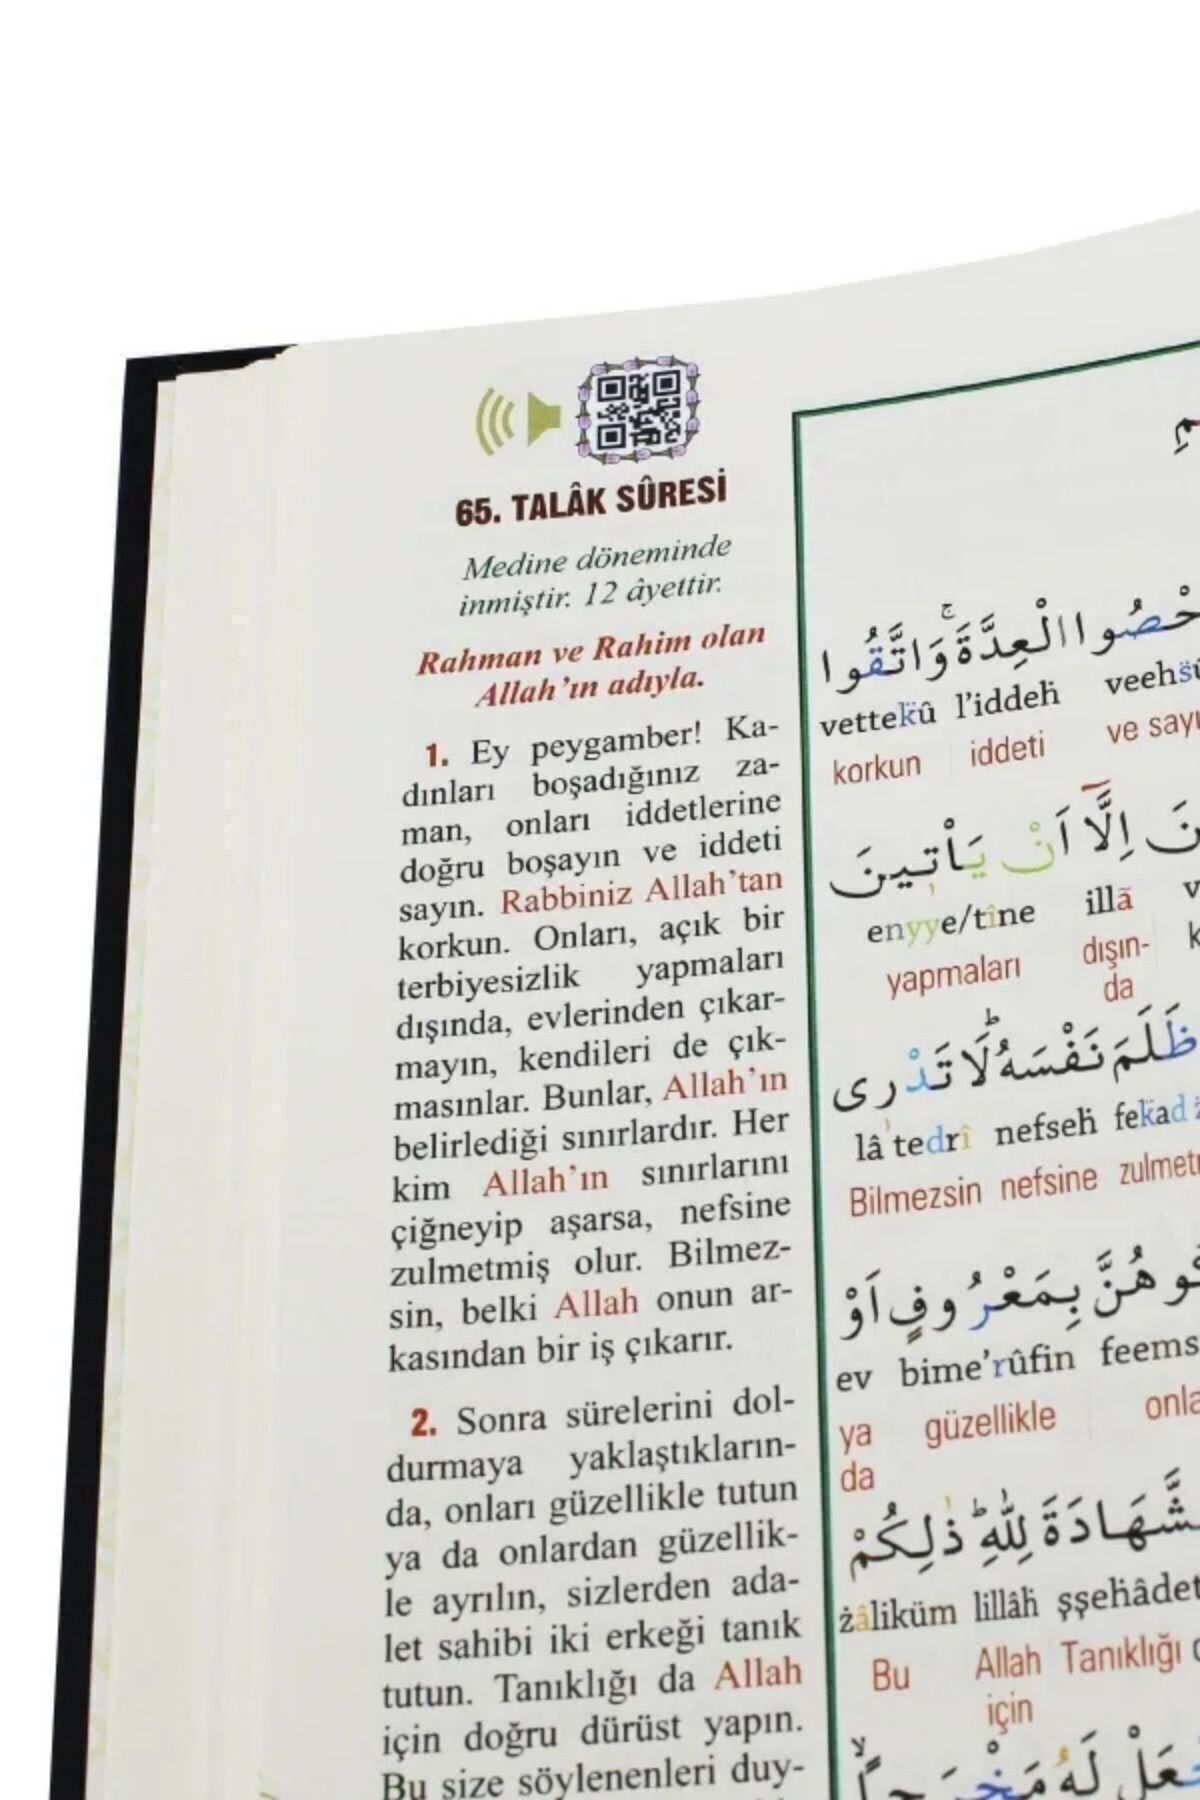 65. TALÂK SÛRESİ
Medine döneminde
inmiştir. 12 âyettir.
Rahman ve Rahim olan
Allah'ın adıyla.
1. Ey peygamber! Ka-
dınları boşadığınız za-
man, onları iddetlerine
doğru boşayın ve iddeti
sayın. Rabbiniz Allah'tan
korkun. Onları, açık bir
terbiyesizlik yapmaları
dışında, evlerinden çıkar-
mayın, kendileri de çık-
masınlar. Bunlar, Allah'ın
belirlediği sınırlardır. Her
kim Allah'ın sınırlarını
çiğneyip aşarsa, nefsine
zulmetmiş olur. Bilmez-
sin, belki Allah onun ar-
kasından bir iş çıkarır.
2. Sonra sürelerini dol-
durmaya yaklaştıkların-
da, onları güzellikle tutun
ya da onlardan güzellik-
le ayrılın, sizlerden ada-
let sahibi iki erkeği tanık
tutun. Tanıklığı da Allah
için doğru dürüst yapın.
Bu size söylenenleri duy-
الْعِدَّةَۚ وَاتَّقُوا
vettek̈û l'iddeḣ
korkun iddeti ve
اِلَّٓا اَنْ يَاْت۪ينَ
enyye/tîne illâ
yapmaları dışın-
da
ظَلَمَ نَفْسَهُۜ لَا تَدْر۪ي
lâ tedrî nefseḣ
Bilmezsin nefsine
هُنَّ بِمَعْرُوفٍ اَوْ
ev bime'rûfin
ya güzellikle
da
لِلّٰهِۜ ذٰلِكُمْ
żâliküm lillâḣ
Bu Allah Tanıklığı
için
لَهُ مَخْرَجًاۙ